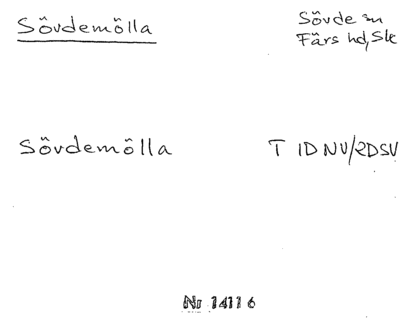 Sövdemölla
Sövde sn
Färs hd, Sk
Sövdemölla T 1D NV/2D SV
Nr 14116